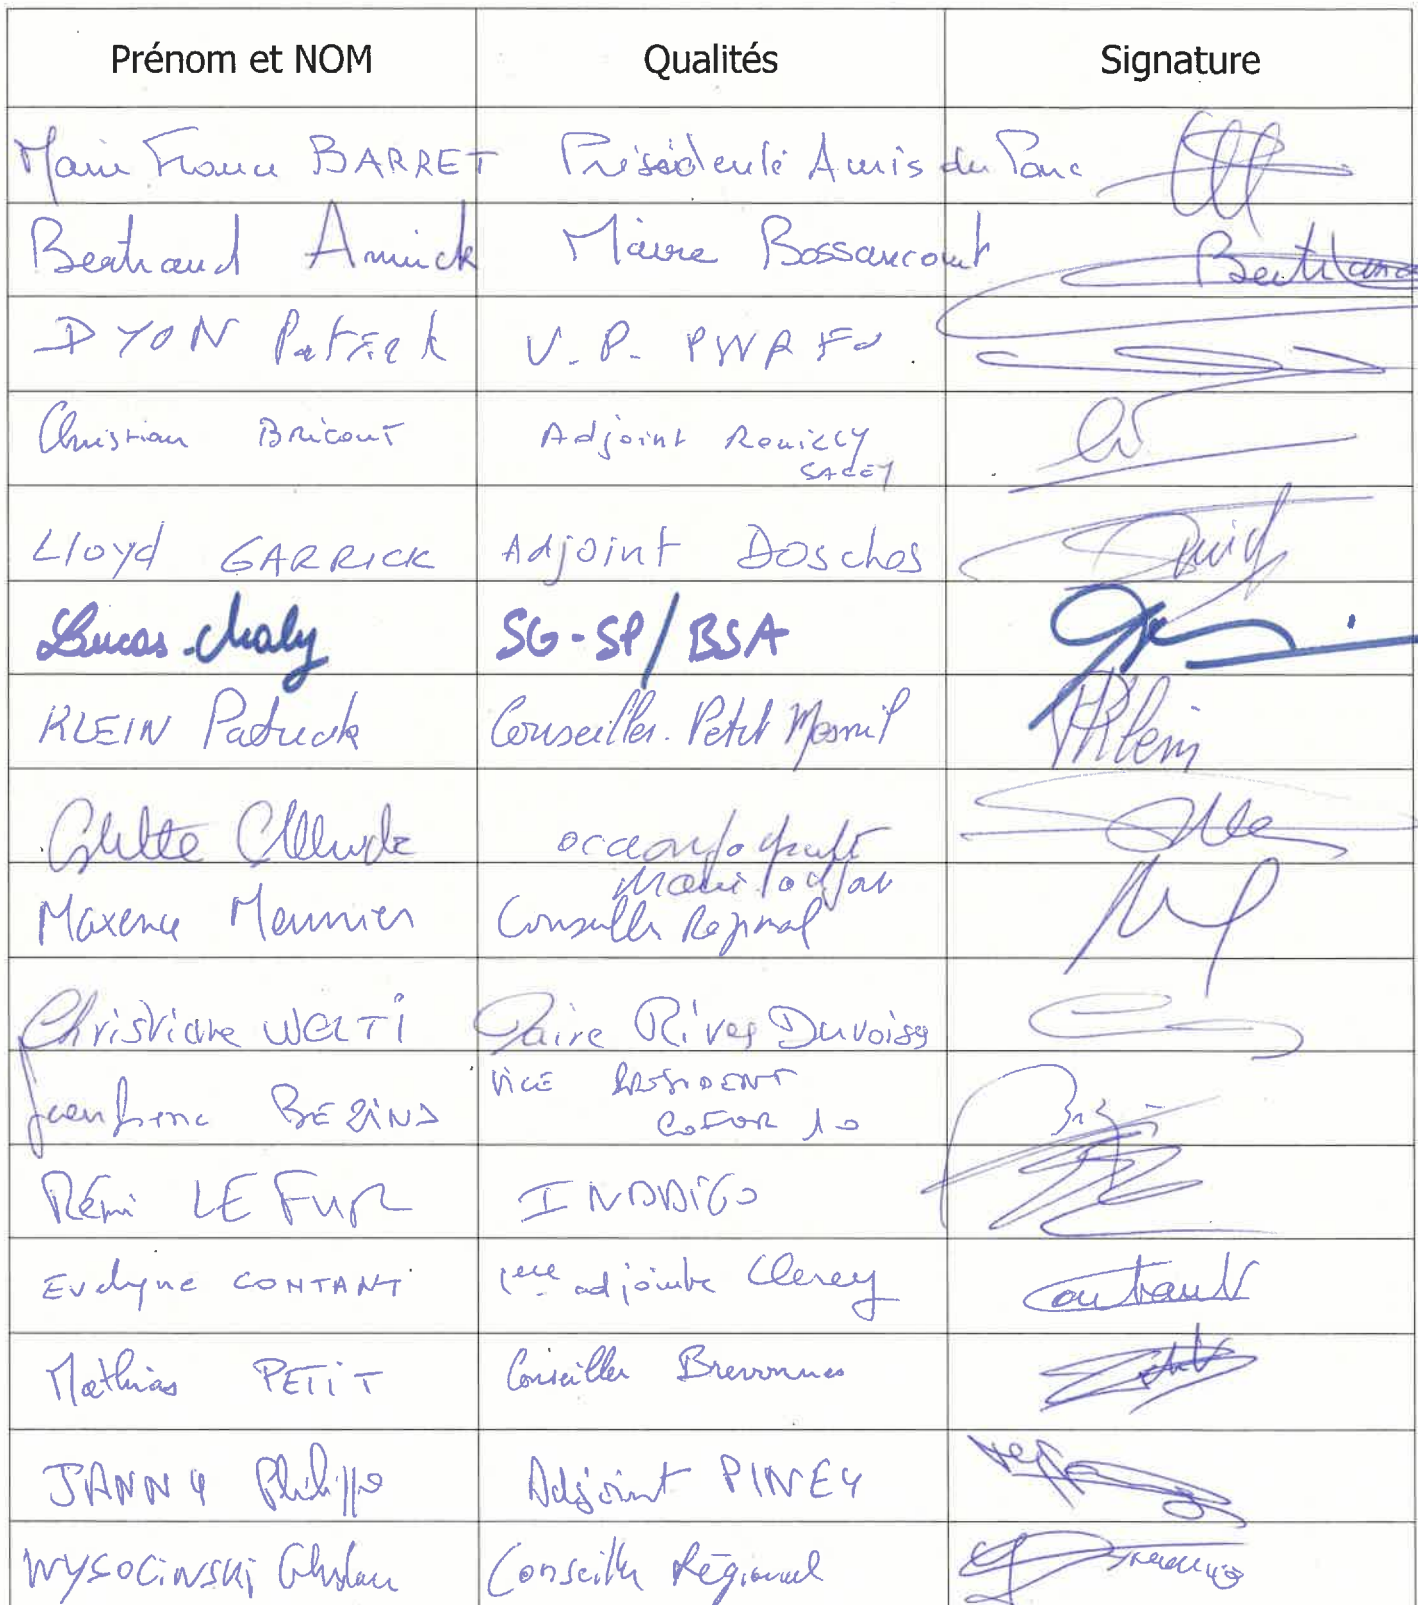 Prénom et NOM Qualités Signature
Marie France BARRET Présidente Amis du Parc
Bertrand Annick Maire Bossancourt Bertrand
DYON Patrick V.P. PNRFO
Christian Bricout Adjoint Rouilly
SACEY
Lloyd GARRICK Adjoint Doschos
Lucas Chaly SG-SP/BSA
KLEIN Patrick Conseiller Petit Mesnil PKlein
Colette
Maxence Meunier Conseiller Régional
Christiane WELTI Maire Rives Dervoises
Jean VICE PRESIDENT
COFOR 10
Rémi LE FUR INDDIGO
Evelyne CONTANT 1ère adjointe Clerey Contant
Mathias PETIT Conseiller Brevonnes
JANNY Philippe Adjoint PINEY
WYSOCINSKI Ghislain Conseiller Régional